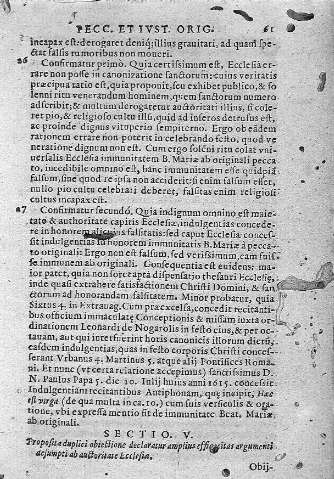 PECC. ET IVST. ORIG. 61
incapax est: derogaret deniq; illius grauitati, ad quam spe-
ctat falsis rumoribus non moueri.
26 Confirmatur primò. Quia certissimum est, Ecclesiã er-
rare non posse in canonizatione sanctorum: cuius veritatis
præcipua ratio est, quia proponit, seu exhibet publico, & so
lenni ritu venerandum hominem, quem sanctorum numero
adscribit; & multum derogaretur auctoritati illius, si cole-
ret pio, & religioso cultu illũ, quid ad inferos detrusus est,
ac proinde dignus vituperio sempiterno. Ergo ob eãdem
rationem errare non poterit in celebrando festo, quod ve
neratione dignum non est. Cum ergo solẽni ritu colat vni-
uersalis Ecclesia immunitatem B. Mariæ ab originali pecca
to, incredibile omnino est, hanc immunitatem esse quidpiã
falsum, siue quod re ipsa non acciderit; si enim falsum esset,
nullo pio cultu celebrari deberet, falsitas enim religiosi
cultus incapax est.
27 Confirmatur secundò, Quia indignum omnino est maie-
tate & authoritate capitis Ecclesiæ, indulgentias concede-
re in honorem alicuius falsitatis: sed caput Ecclesiæ conces-
sit indulgentias in honorem immunitatis B. Mariæ à pecca-
to originali: Ergo non est falsum, sed verissimum, eam fuis-
se immunem ab originali. Consequentia est euidens: ma-
ior patet, quia non foret apta dispensatio thesauri Ecclesiæ,
inde quasi extrahere satisfactionem Christi Domini, & san
ctorum ad honorandam falsitatem. Minor probatur, quia
Sixtus 4. in Extrauag. Cum præexcelsa, concedit recitanti-
bus officium immaculatæ Conceptionis & missam iuxta or-
dinationem Leonardi de Nogarolis in festo eius, & per oc-
tauam, aut qui interfuerint horis canonicis illorum dierũ,
easdem indulgentias, quas in festo corporis Christi conces-
serant Vrbanus 4. Martinus 5. atque alij Pontifices Roma-
ni. Et nunc (vt certa relatione accepimus) sanctissimus D.
N. Paulus Papa 5. die 10. Iulij huius anni 1615. concessit
Indulgentiam recitantibus Antiphonam, quæ incipit, Hæc
est virga (de qua multa in ca. 10.) cum suis versiculis & ora-
tione, vbi expressa mentio fit de immunitate Beat. Mariæ,
ab originali.
SECTIO V.
Proposita duplici obiectione declaratur amplius efficacitas argumenti
desumpti ab authoritate Ecclesiæ.
Obij-